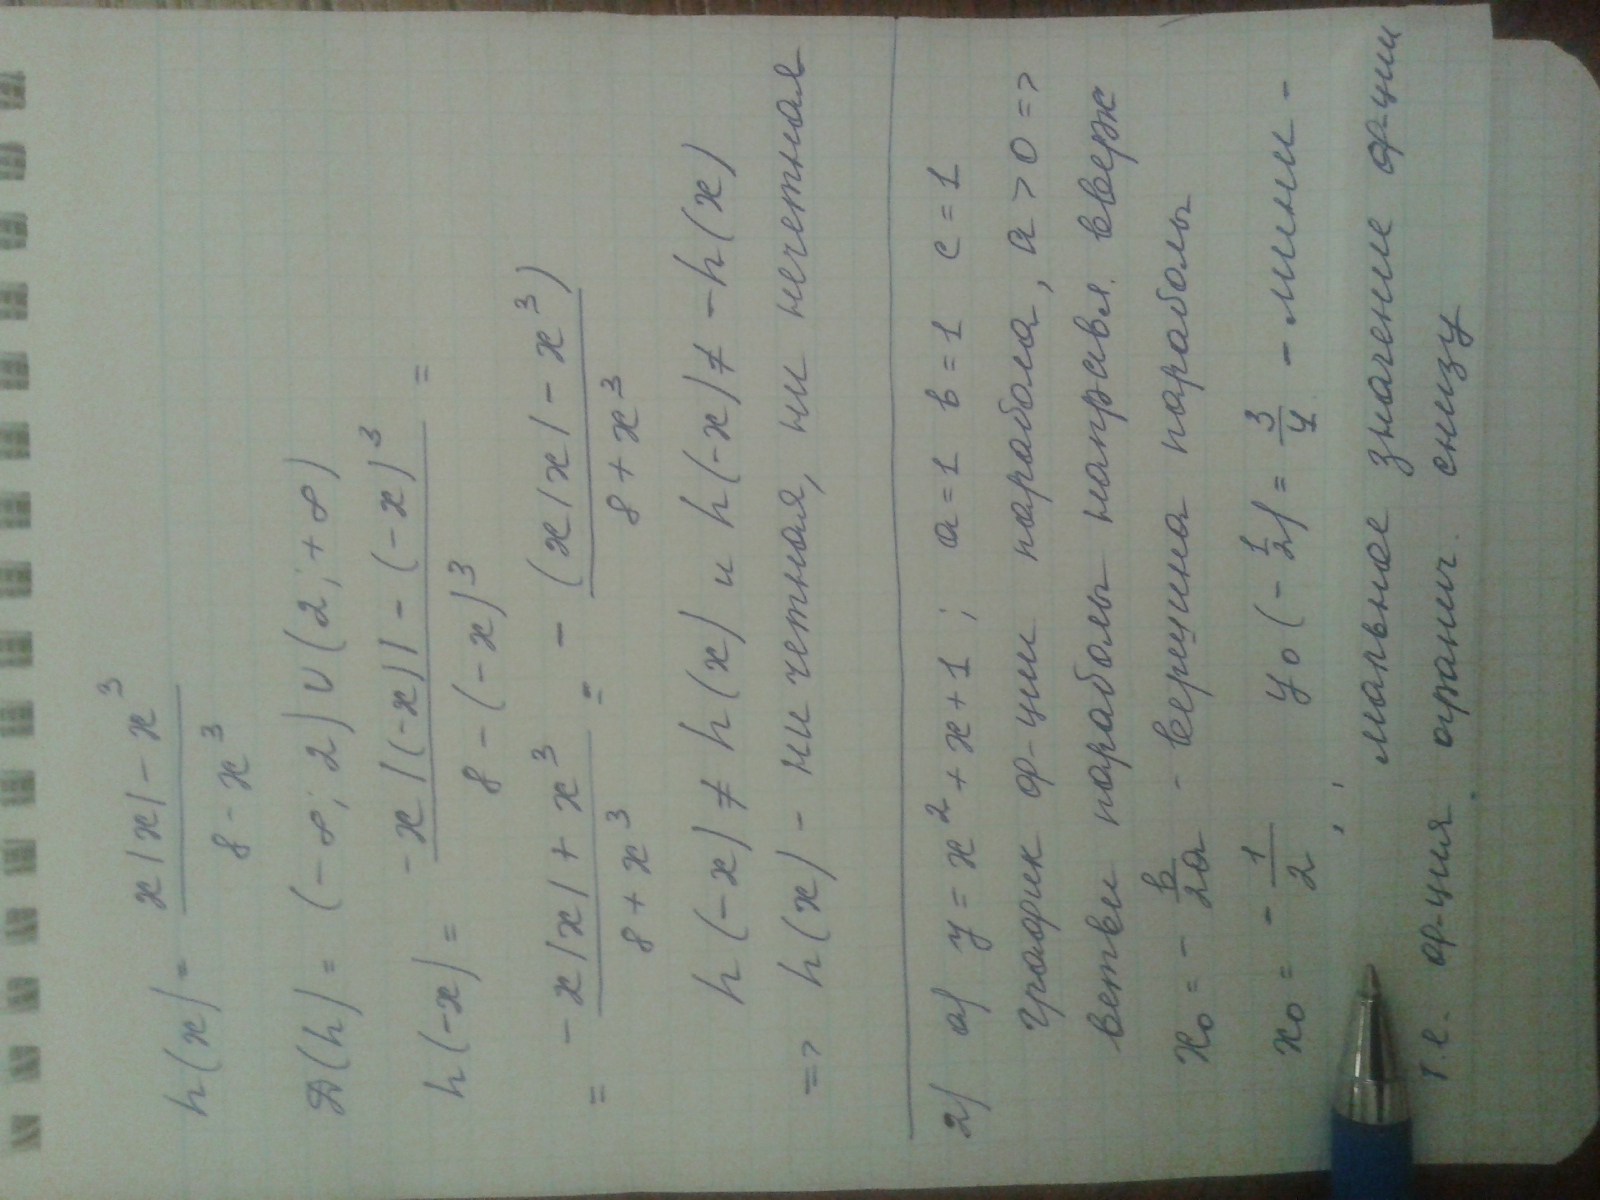 h(x) = x|x| - x³ / 8 - x³
D(h) = (-∞; 2) ∪ (2; +∞)
h(-x) = -x|(-x)| - (-x)³ / 8 - (-x)³ =
= -x|x| + x³ / 8 + x³ = - (x|x| - x³) / 8 + x³
h(-x) ≠ h(x) и h(-x) ≠ -h(x)
=> h(x) - ни четная, ни нечетная
2) а) y = x² + x + 1 ; a = 1 в = 1 c = 1
График ф-ции парабола, a > 0 =>
ветви параболы направл. вверх
x₀ = - в/2a - вершина параболы
x₀ = - 1/2 ; y₀(-1/2) = 3/4 - мини-
мальное значение ф-ции
т.е. ф-ция огранич. снизу